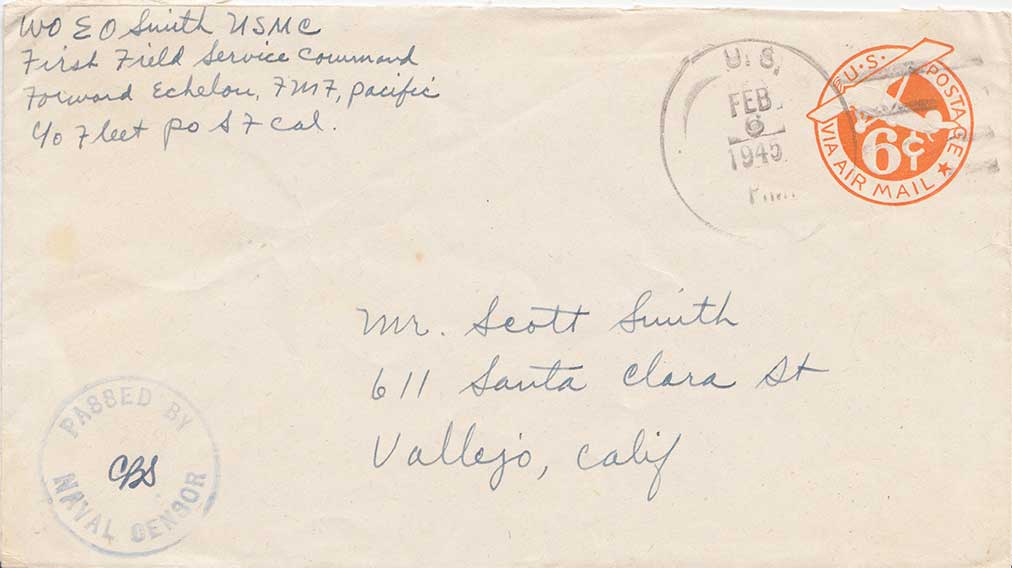 WO E O Smith USMC
First Field Service Command
Forward Echelon, FMF, Pacific
c/o Fleet PO S F Cal.
U. S.
FEB
6
1945
P.M.
U.S. POSTAGE
6¢
VIA AIR MAIL
Mr. Scott Smith
611 Santa Clara St
Vallejo, Calif
PASSED BY
CBS
NAVAL CENSOR